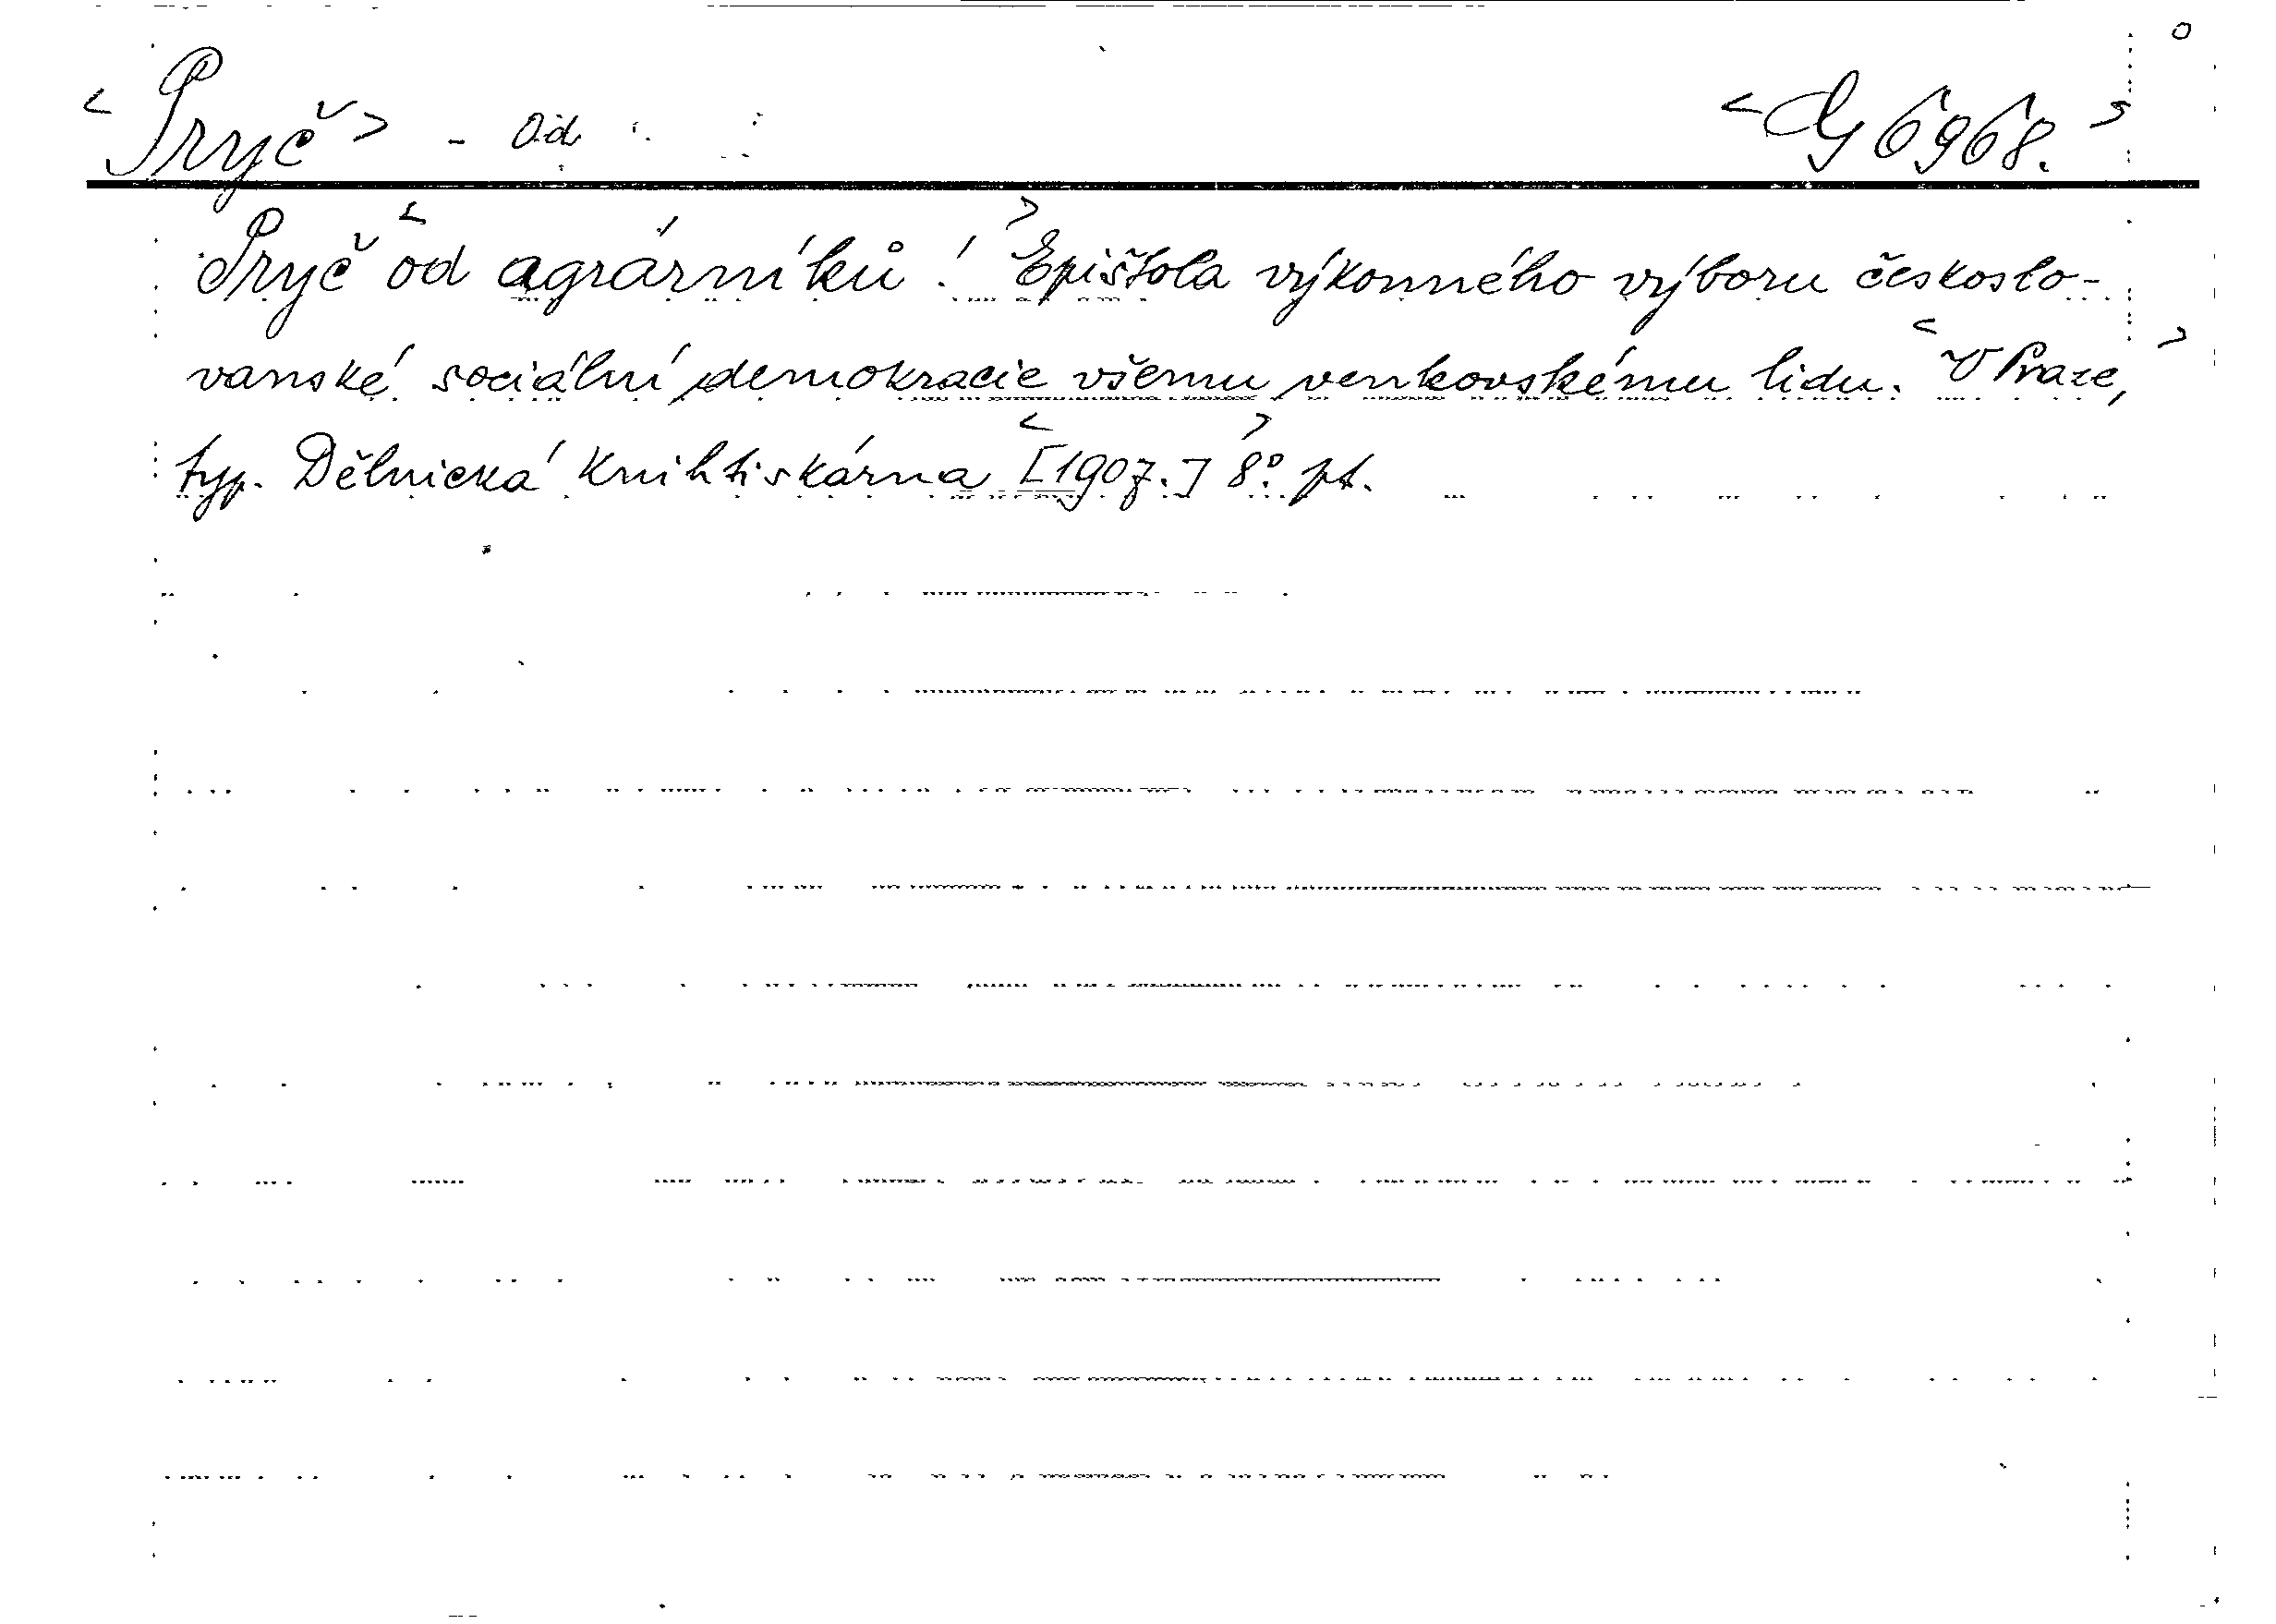 <Pryč> - Od <G 6968.>
Pryč <od agrárníků!> Epištola výkonného výboru českoslo-
vanské sociální demokracie všemu venkovskému lidu. <V Praze,>
typ. Dělnická Knihtiskárna <[1907.]> 8° pt.